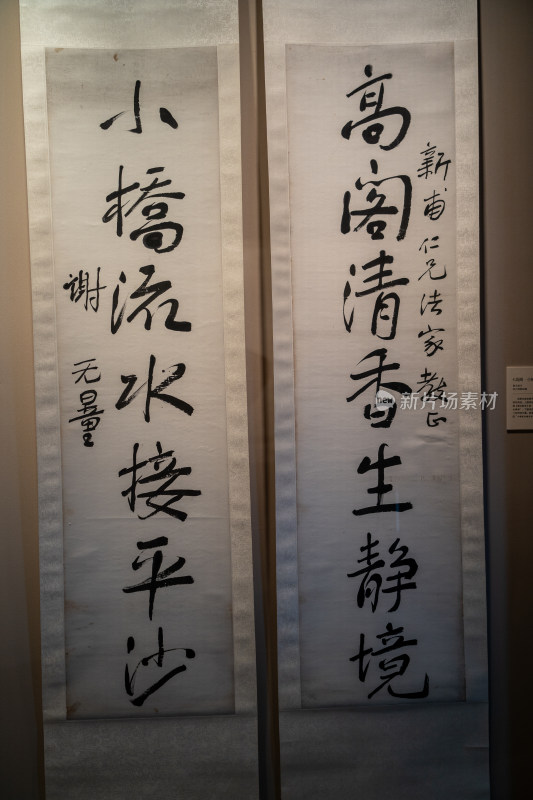 高阁清香生静境
新甫仁兄法家教正
小橋流水接平沙
谢无量
new 新片场素材